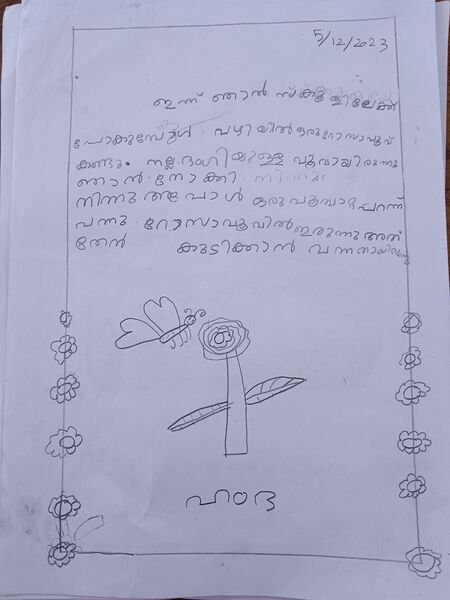 5/12/2023
ഇന്ന് ഞാൻ സ്കൂളിലേക്ക്
പോകുമ്പോൾ വഴിയിൽ ഒരു റോസാപൂവ്
കണ്ടും. നല്ല ഭംഗിയുള്ള പൂവായിരുന്നു
ഞാൻ നോക്കി നിന്നു
നിന്നു അപ്പോൾ ഒരു പൂമ്പാറ്റ പറന്ന്
വന്നു. റോസാപൂവിൽ ഇരുന്നു അത്
തേൻ കുടിക്കാൻ വന്നതായിരുന്നു
ഹംദ